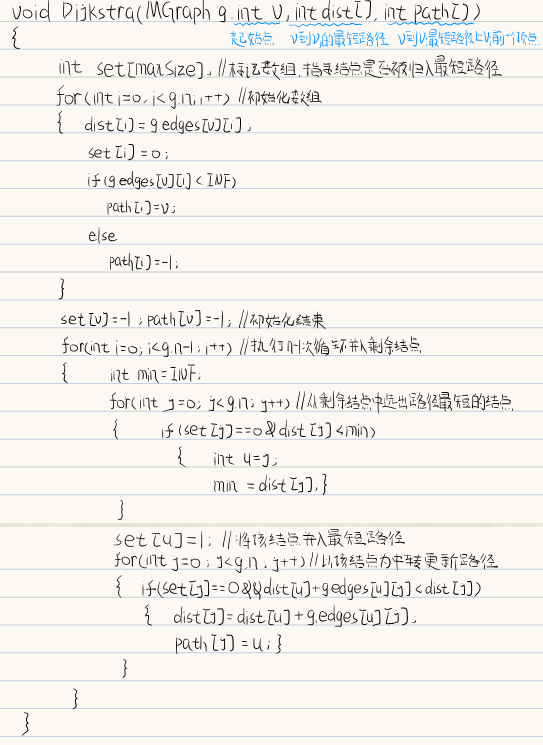 void Dijkstra(MGraph g,int v,int dist[],int path[])
起始点 v到vi的最短路径 v到vi最短路径上vi前一个顶点
{
int set[maxsize],//标记数组,指示结点是否被归入最短路径
for(int i=0,i<g.n;i++) //初始化数组
{ dist[i]=g.edges[v][i];
set[i]=0;
if(g.edges[v][i]<INF)
path[i]=v;
else
path[i]=-1;
}
set[v]=-1;path[v]=-1; //初始化结束
for(int i=0;i<g.n-1;i++) //执行n-1次循环并入剩余结点
{ int min=INF;
for(int j=0; j<g.n; j++) //从剩余结点中选出路径最短的结点
{ if(set[j]==0&dist[j]<min)
{ int u=j;
min =dist[j],}
}
set[u]=1; //将该结点并入最短路径
for(int j=0;j<g.n,j++) //以该结点为中转更新路径
{ if(set[j]==0&&dist[u]+g.edges[u][j]<dist[j])
{ dist[j]=dist[u]+g.edges[u][j],
path[j]=u;}
}
}
}